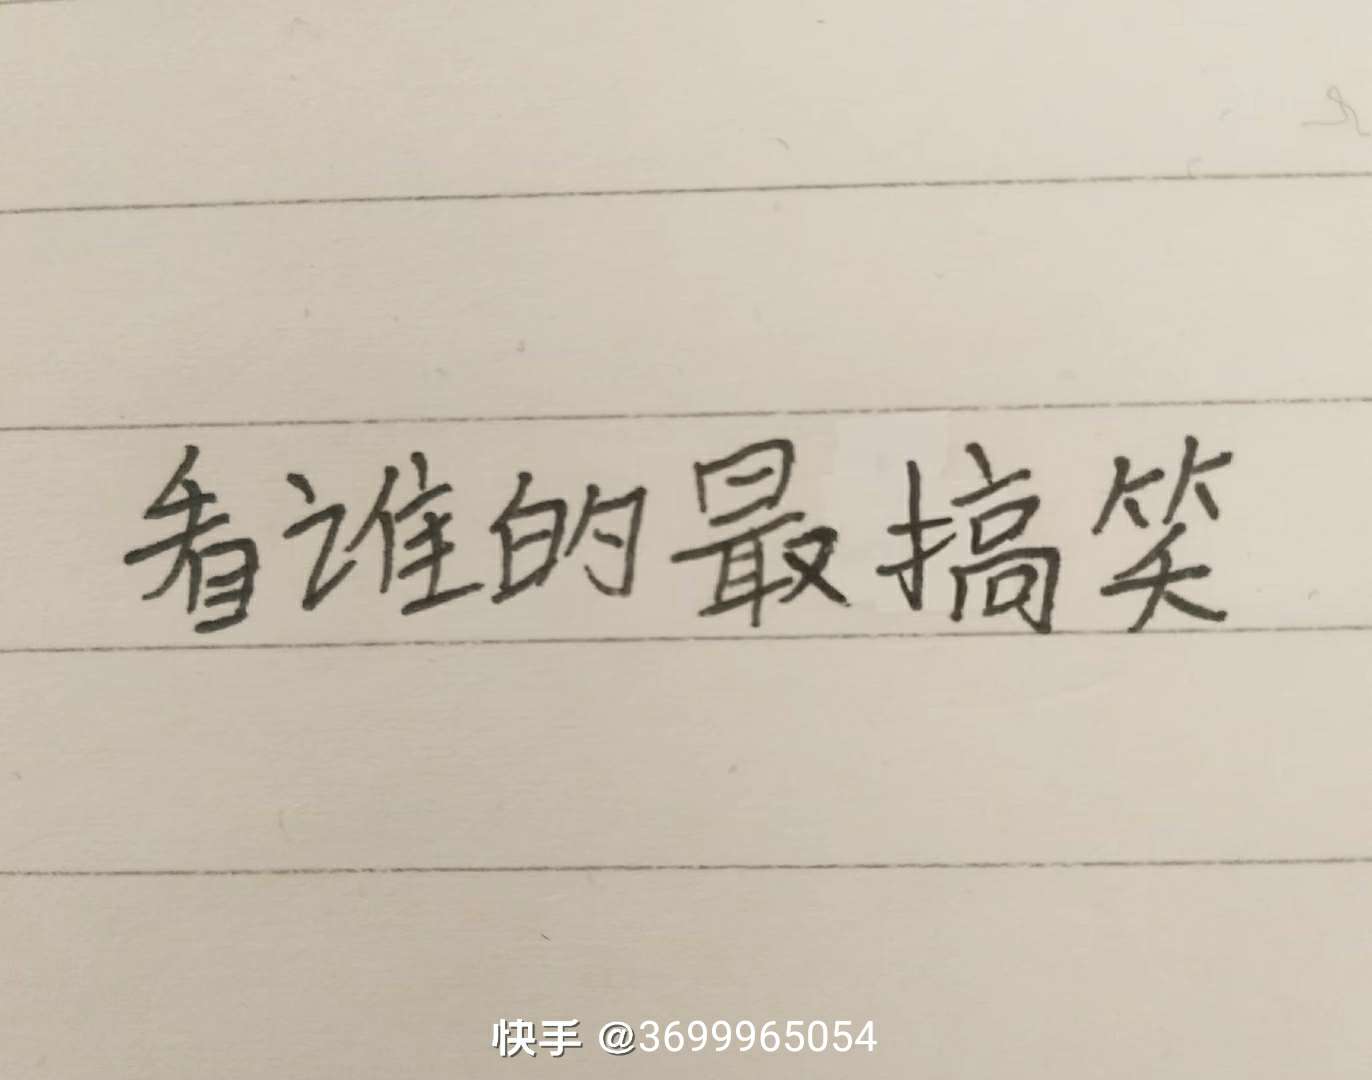 看谁的最搞笑
快手 @3699965054